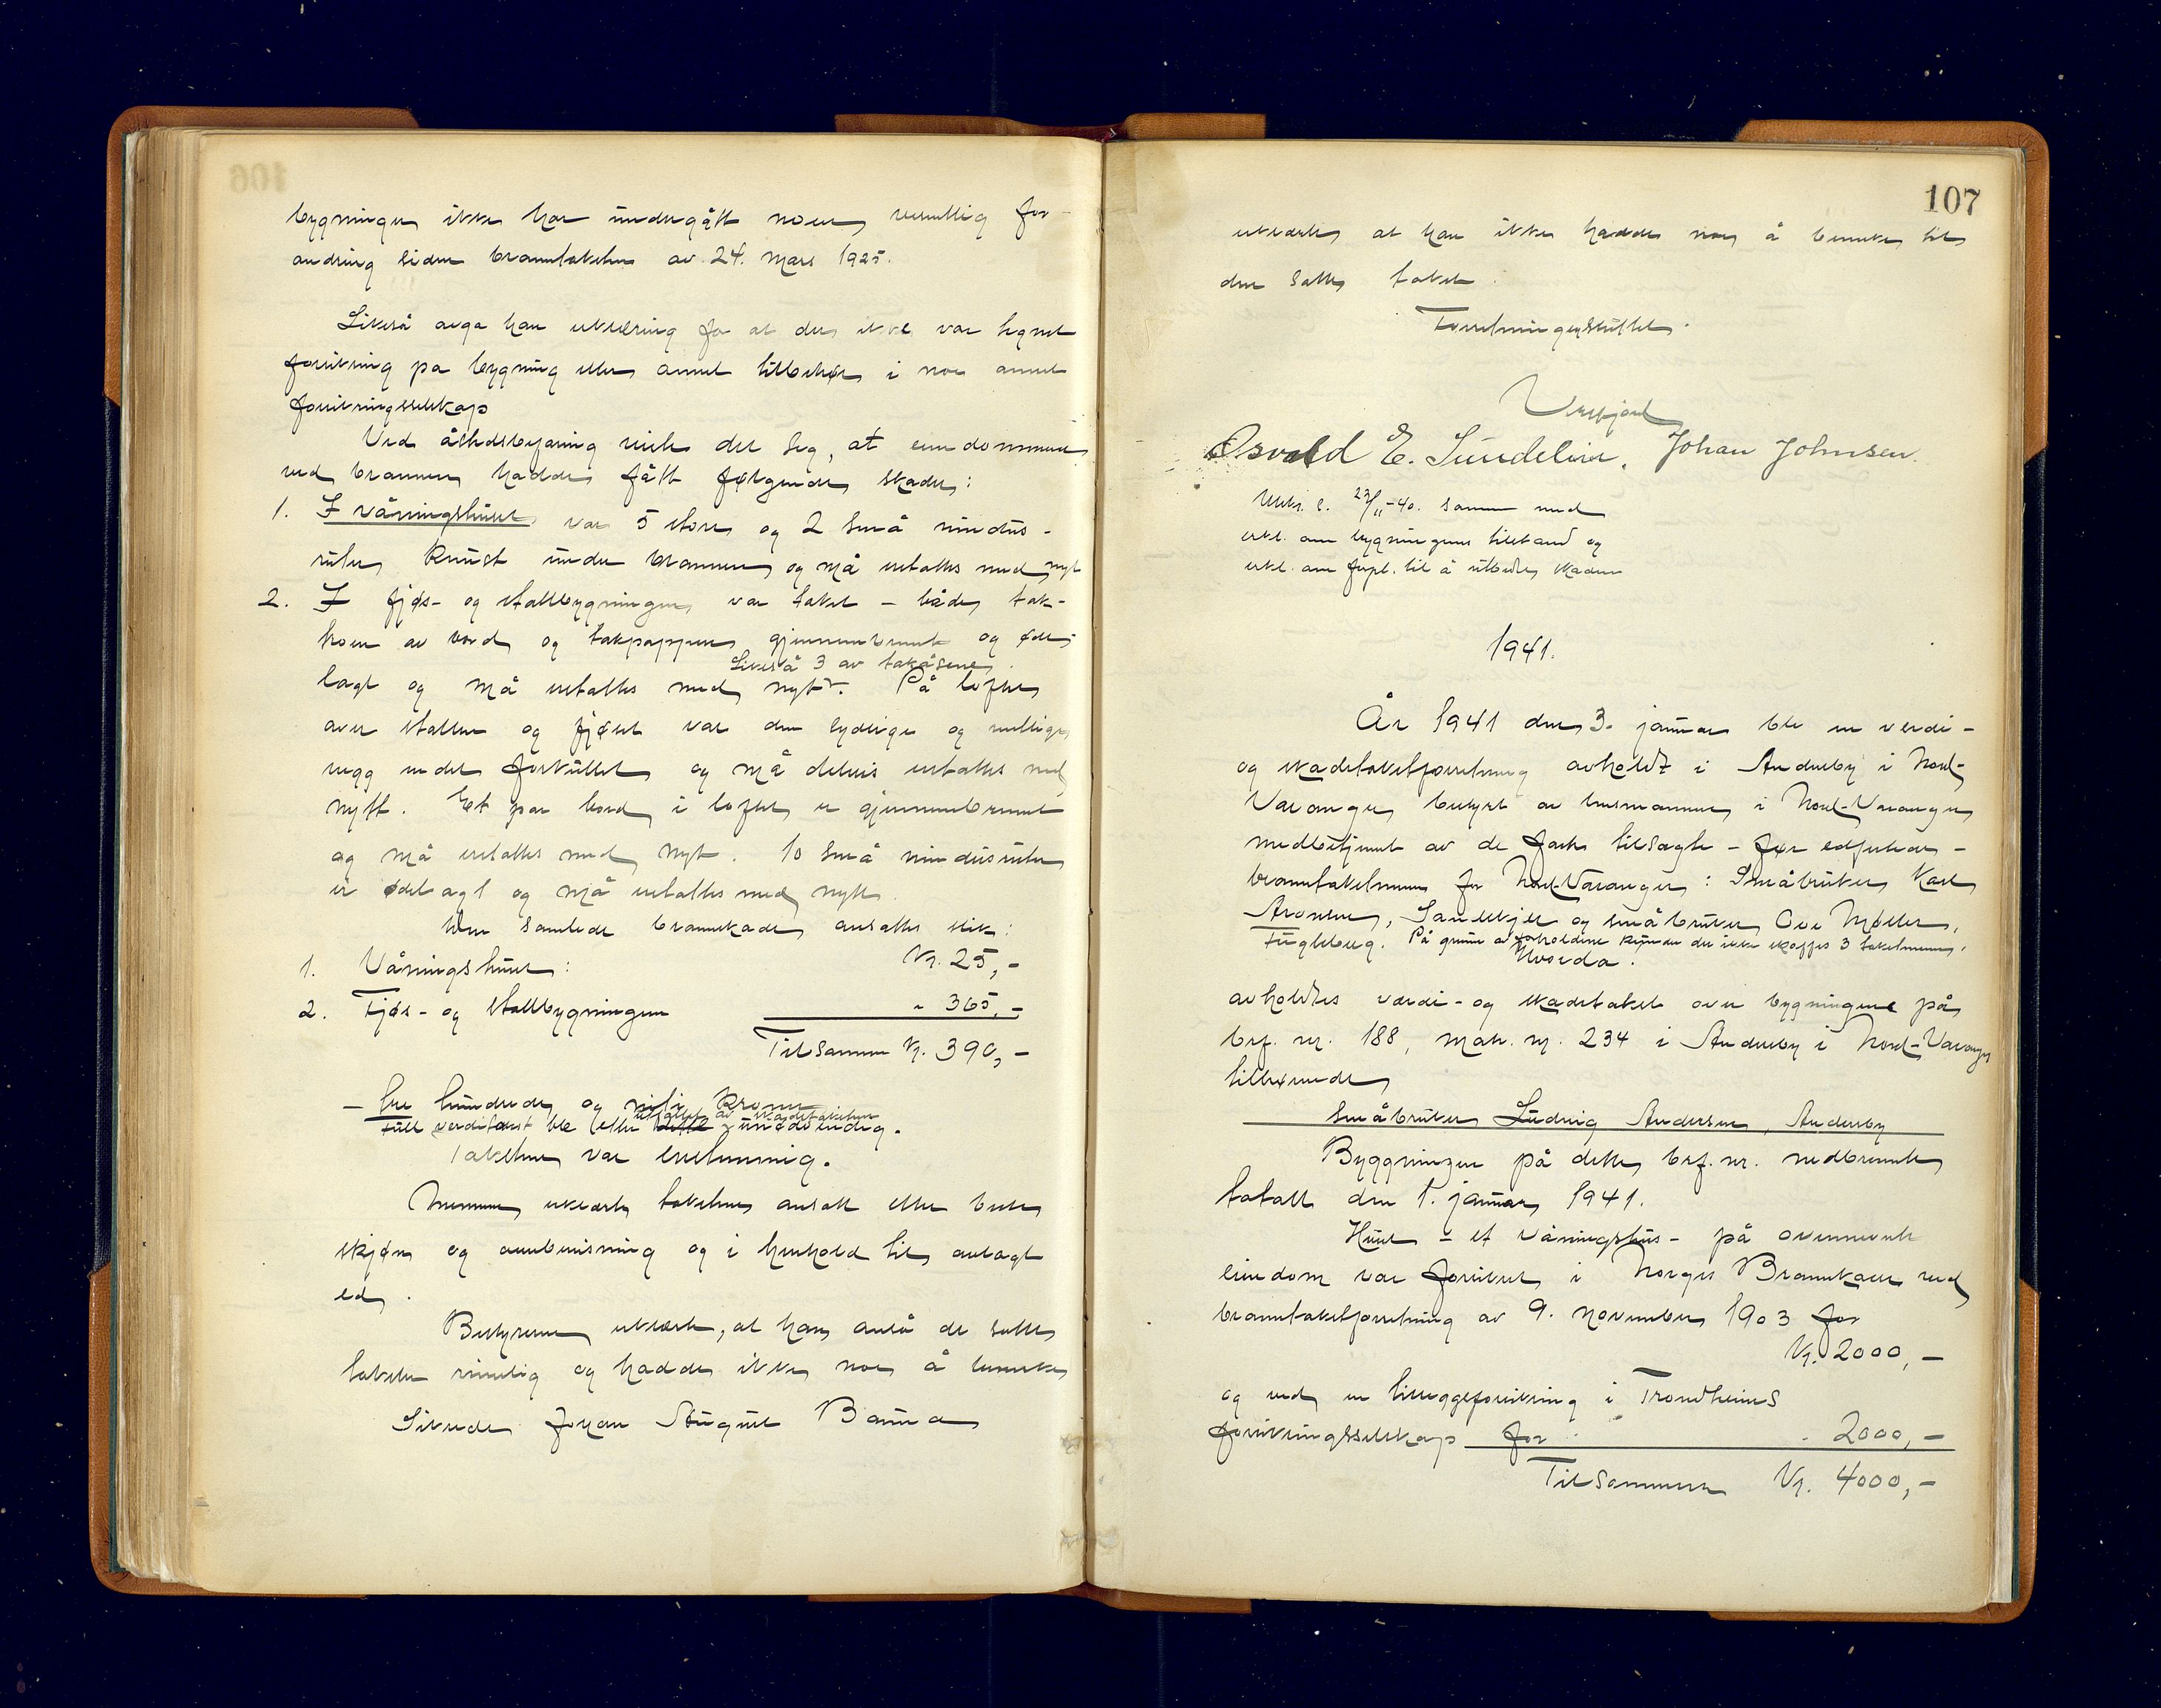 bygningen ikke har undergått noen vesentlig for-
andring siden branntaksten av 24. mars 1925.
Likeså avga han erklæring for at der ikke var tegnet
forsikring på bygning eller annet tilbehør i noe annet
forsikringsselskap
Ved åstedsbefaring viste det seg, at eiendommen
ved brannen hadde fått følgende skader:
1. I våningshuset var 5 store og 2 små vindus-
ruter knust under brannen og må erstattes med nytt
2. I fjøs- og stallbygningen var taket - både tak-
troen av bord og takpappen gjennembrent og øde-
Likeså 3 av takåsene.
lagt og må erstattes med nytt. På loftet
over stallen og fjøset var den sydlige og vestlige
vegg endel forkullet og må delvis erstattes med
nytt. Et par bord i loftet er gjennembrent
og må erstattes med nytt. 10 små vindusruter
er ødelagt og må erstattes med nytt.
Den samlede brannskade ansattes slik:
1. Våningshuset: Kr. 25,-
2. Fjøs- og stallbygningen " 365,-
Tilsammen Kr. 390,-
- tre hundrede og nitti kroner
resultatet av skadetaksten
full verditakst ble etter dette unødvendig.
Taksten var enstemmig.
Mennene erklærte taksten ansatt etter beste
skjønn og overbevisning og i henhold til avlagt
ed.
Bestyreren erklærte, at han anså de satte
takster rimelig og hadde ikke noe å bemerke
Skadelidte Johan August Bauna
107
erklærte at han ikke hadde noe å bemerke til
den satte takst.
Forretningen sluttet.
Osvald E. Sundelin. Johan Johnsen.
Utskr. s. 23/11-40. sammen med
erkl. om bygningens tilstand og
erkl. om forpl. til å utbedre skaden
1941.
År 1941 den 3. januar ble en verdi-
og skadetakstforretning avholdt i Andersby i Nord-
Varanger bestyrt av lensmannen i Nord-Varanger
medbetjent av de faste tilsagte - før edfestede -
branntakstmenn for Nord-Varanger: Småbruker Karl
Aronsen, Sandskjer og småbruker Ove Møller,
Fugleberg. På grunn av forholdene kunne der ikke skaffes 3 takstmenn.
Hvorda.
avholdtes verdi- og skadetakst over bygningene på
brf. nr. 188, matr. nr. 234 i Andersby i Nord-Varanger
tilhørende
Småbruker Ludvig Andersen, Andersby
Byggningen på dette brf. nr. nedbrente
totalt den 1. januar 1941.
Huset - et våningshus - på ovennevnte
eiendom var forsikret i Norges Brannkasse ved
branntakstforretning av 9. november 1903 for
Kr. 2000,-
og ved en tilleggsforsikring i Trondheims
forsikringsselskap for " 2000,-
Tilsammen Kr. 4000,-